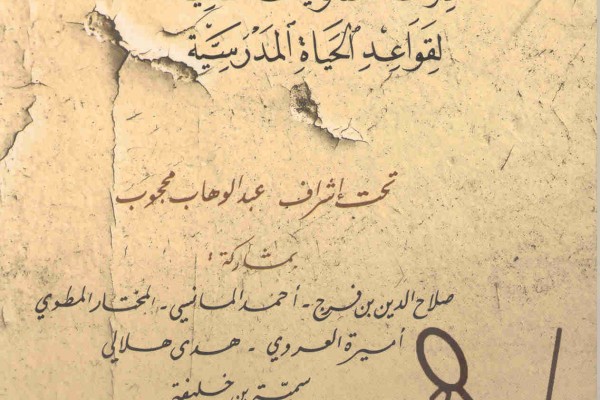 لِقَوَاعِدِ الحَيَاةِ المَدْرَسِيَّةِ
تحت إشراف عبد الوهاب محجوب
بمشاركة :
صلاح الدين بن فرج - أحمد المانسي - المختار المطوي
أميرة العروي - هدى هلالي
سميّة بن خليفة